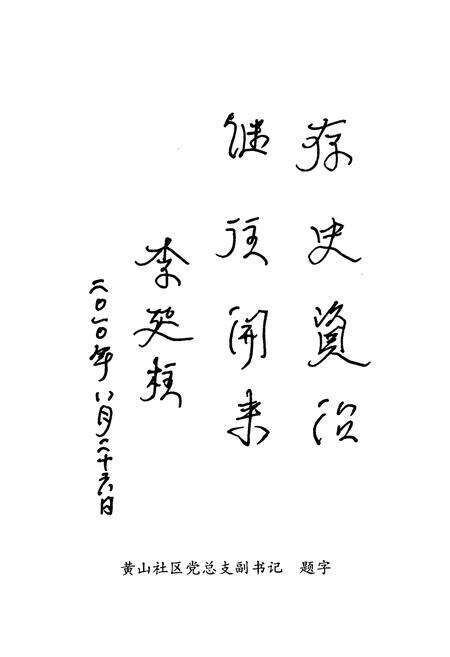 存史資治
继往開来
李延柱
二〇一〇年八月二十六日
黄山社区党总支副书记　题字